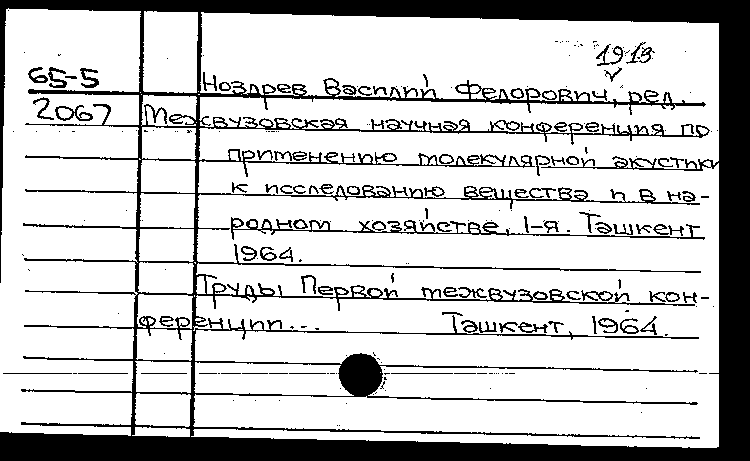 1913
65-5 Ноздрев, Василий Федорович, ред.
2067 Межвузовская научная конференция по
применению молекулярной акустики
к исследованию вещества и в на-
родном хозяйстве, 1-я. Ташкент
1964.
Труды Первой межвузовской кон-
ференции... Ташкент, 1964.